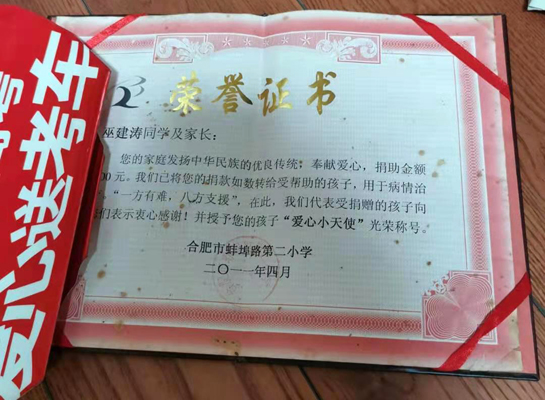 荣誉证书
巫建涛同学及家长：
您的家庭发扬中华民族的优良传统，奉献爱心，捐助金额
00元。我们已将您的捐款如数转给受帮助的孩子，用于病情治
。“一方有难，八方支援”，在此，我们代表受捐赠的孩子向
们表示衷心感谢！并授予您的孩子“爱心小天使”光荣称号。
合肥市蚌埠路第二小学
二〇一一年四月
爱心送考车
号